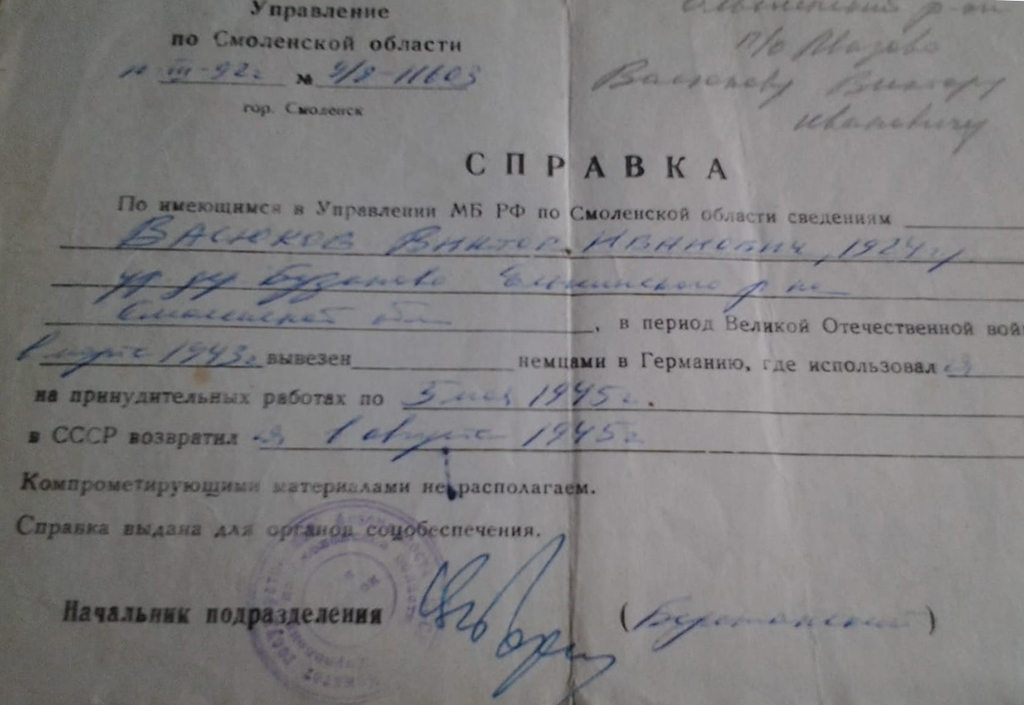 Управление
по Смоленской области
III-92г № 9/8-11603
гор. Смоленск
р-он
п/о Мазово
Васюкову Виктору
Ивановичу
СПРАВКА
По имеющимся в Управлении МБ РФ по Смоленской области сведениям
Васюков Виктор Иванович, 1924 г.
Ельнинского р-на
Смоленской обл., в период Великой Отечественной вой
в марте 1943г. вывезен немцами в Германию, где использовался
на принудительных работах по 5 мая 1945г.
в СССР возвратился в августе 1945г
Компрометирующими материалами не располагаем.
Справка выдана для органов соцобеспечения.
Начальник подразделения ( )